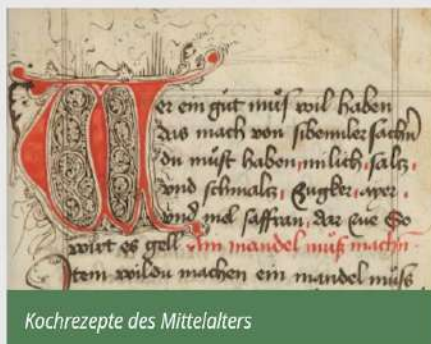 Wer ein gůt můs wil haben
das mach von sibennler sachn
du můst haben, milich, saltz,
vnd schmaltz, Zugker, ayer,
vnd mel saffran, dar zue So
wirt es gell Ain mandel můß machn
Item wildu machen ein mandel můss
Kochrezepte des Mittelalters